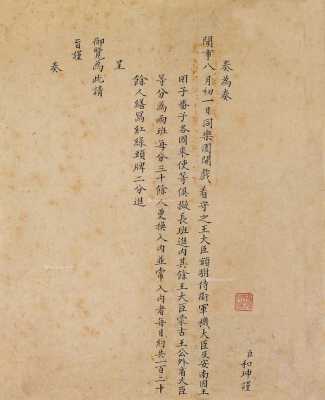 臣和珅謹
奏為奏
聞事八月初一日同樂園開戲看守之王大臣額駙侍衛軍機大臣及安南國王
回子番子各國來使等俱擬長班進內其餘王大臣蒙古王公外省大臣
等分為兩班每分三十餘人更換入內並常入內者每日約共一百二十
餘人繕寫紅綠頭牌二分進
呈
御覽為此請
旨謹
奏